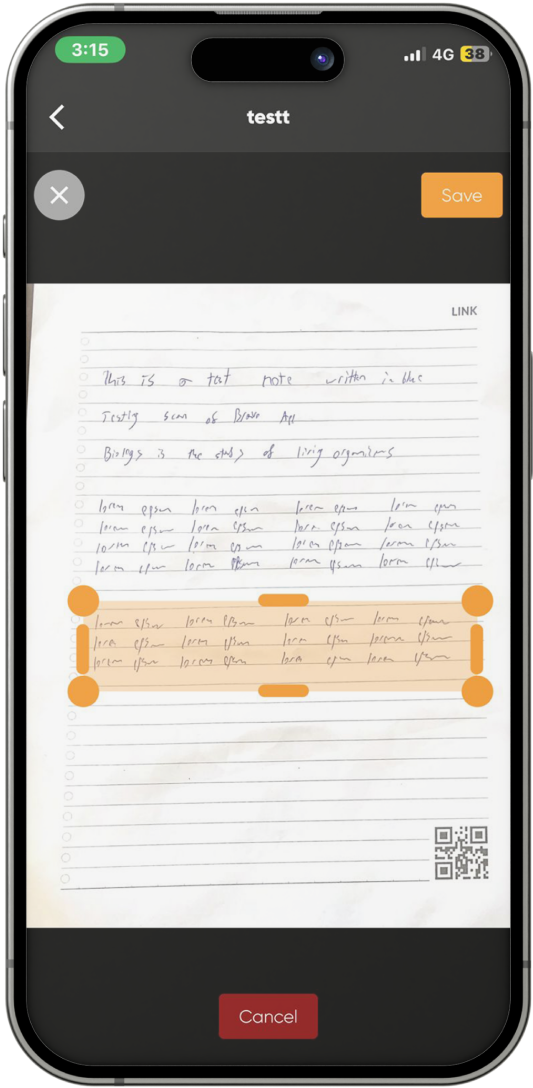 3:15
4G 38
testt
Save
LINK
This is a test note written in blue
Testig scan of Brave App
Biology is the study of livig organisms
lorem epsum lorem epsum lorem epsum lorem epsum
lorem epsum lorem epsum lorem epsum lorem epsum
lorem epsum lorem epsum lorem epsum lorem epsum
lorem epsum lorem epsum lorem epsum lorem epsum
lorem epsum lorem epsum lorem epsum lorem epsum
lorem epsum lorem epsum lorem epsum lorem epsum
lorem epsum lorem epsum lorem epsum lorem epsum
Cancel